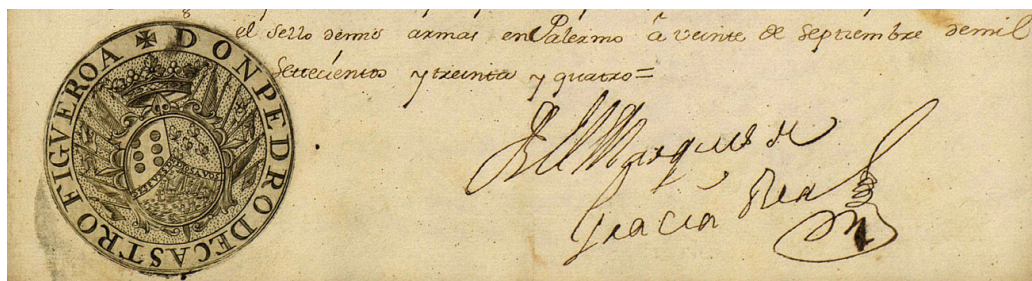 el sello demis armas en Palermo â veinte de Septiembre demil
settecientos y treinta y quatro=
El Marques de
Gracia Real
✠ DON PEDRO DE CASTRO FIGVEROA